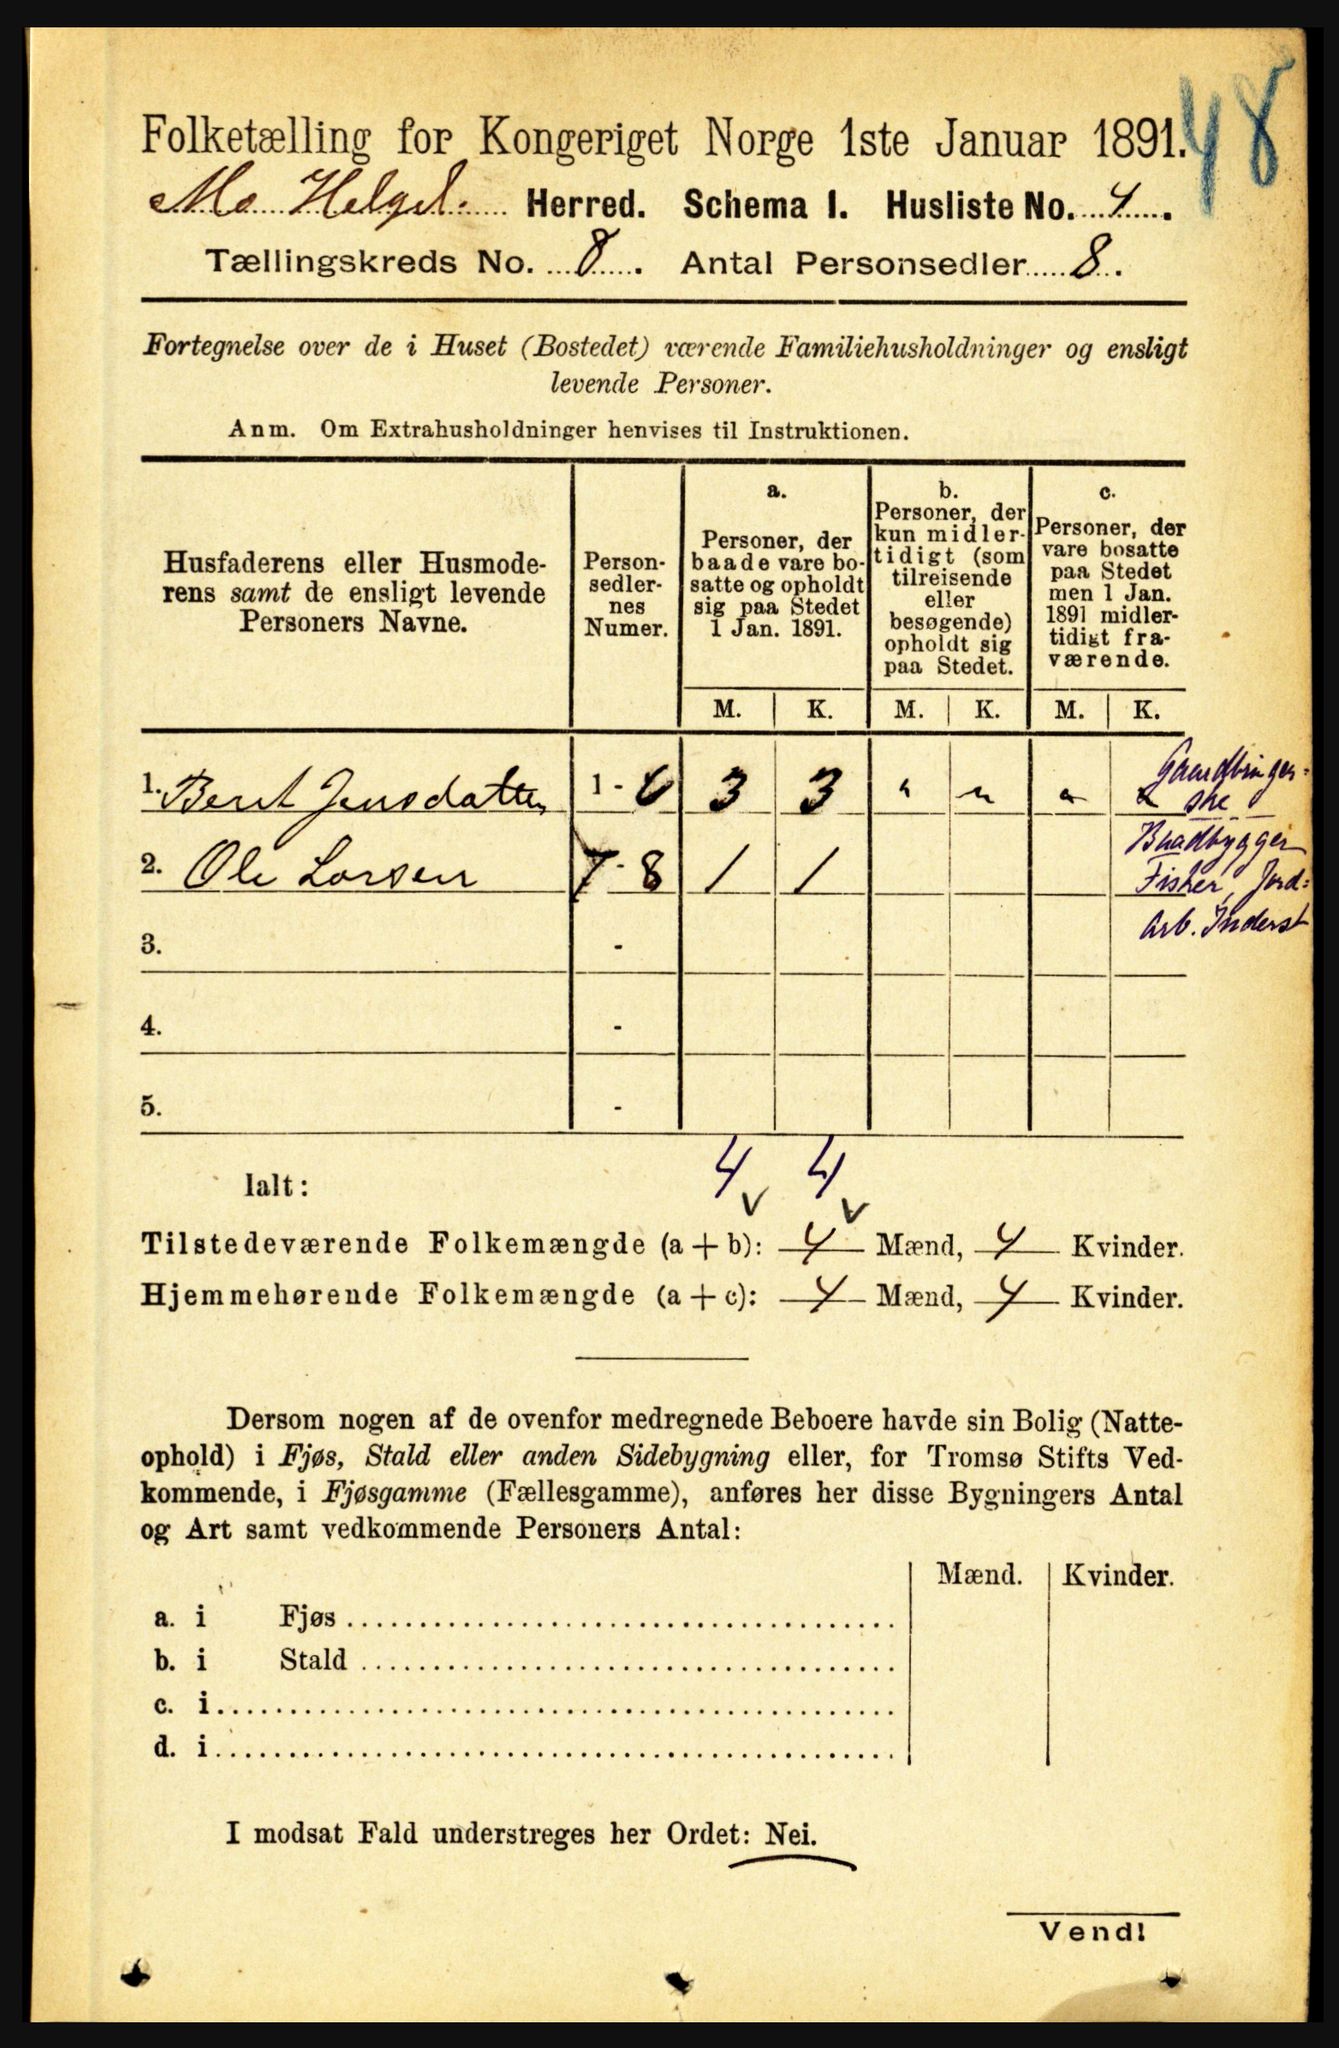 48
Folketælling for Kongeriget Norge 1ste Januar 1891.
Mo Helgel. Herred. Schema I. Husliste No. 4.
Tællingskreds No. 8. Antal Personsedler 8.
Fortegnelse over de i Huset (Bostedet) værende Familiehusholdninger og ensligt
levende Personer.
Anm. Om Extrahusholdninger henvises til Instruktionen.
Husfaderens eller Husmode-
rens samt de ensligt levende
Personers Navne.
Person-
sedler-
nes
Numer.
a.
Personer, der
baade vare bo-
satte og opholdt
sig paa Stedet
1 Jan. 1891.
b.
Personer, der
kun midler-
tidigt (som
tilreisende
eller
besøgende)
opholdt sig
paa Stedet.
c.
Personer, der
vare bosatte
paa Stedet
men 1 Jan.
1891 midler-
tidigt fra-
værende.
M. K. M. K. M. K.
1. Berit Jensdatter 1 - 6 3 3 " " "
2. Ole Larsen 7 - 8 1 1
Baadbygger
Fisker, Jord-
Arb. Inderst
3. -
4. -
5. -
Ialt: 4 4
Tilstedeværende Folkemængde (a + b): 4 Mænd, 4 Kvinder.
Hjemmehørende Folkemængde (a + c): 4 Mænd, 4 Kvinder.
Dersom nogen af de ovenfor medregnede Beboere havde sin Bolig (Natte-
ophold) i Fjøs, Stald eller anden Sidebygning eller, for Tromsø Stifts Ved-
kommende, i Fjøsgamme (Fællesgamme), anføres her disse Bygningers Antal
og Art samt vedkommende Personers Antal:
Mænd. Kvinder.
a. i Fjøs
b. i Stald
c. i
d. i
I modsat Fald understreges her Ordet: Nei.
Vend!